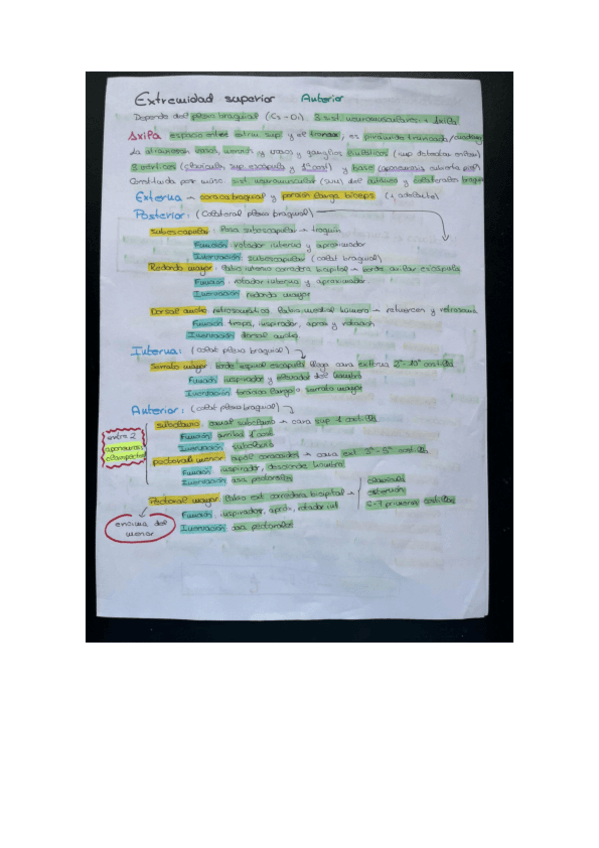 Extremidad superior Anterior
Depende del plexo braquial (C5 - D1) 3 sist neuromusculares + axila
Axila espacio entre extrem sup y el tronco, es piramide truncada
La atraviesan vasos, y vasos y ganglios linfáticos (sup
3 vértices (clavícula, sup escápula y 1ª cost) y base (aponeurosis cubierta piel)
Constituida por sist neuromuscular del y colaterales
Externa → coracobraquial y porción larga biceps (+ adelante)
Posterior: (colateral plexo braquial)
subescapular: fosa subescapular → troquin
Función: rotador interno y aproximador
Inervación: subescapular (colat braquial)
Redondo mayor: labio interno corredera bicipital → borde axilar escápula
Función: rotador interno y aproximador
Inervación: redondo mayor
Dorsal ancho: retrosomático. labio medial húmero →
Función: trepa, inspirador, aprox y rotación
Inervación: dorsal ancho
Interna: (colat plexo braquial)
Serrato mayor: borde espinal escápula llega cara externa 2ª-10ª costilla
Función: inspirador y elevador del hombro
Inervación: torácico largo o serrato mayor
Anterior: (colat plexo braquial)
subclavio: canal subclavio → cara sup 1 costilla
Función: 1 cost
Inervación: subclavio
entre 2
aponeurosis
clavipectoral
pectoral menor: apóf coracoides → cara ext 3ª-5ª costilla
Función: inspirador, desciende hombro
Inervación: asa pectorales
Pectoral mayor: labio ext corredera bicipital → clavícula
esternón
5-7 primeras costillas
Función: inspirador, aprox, rotador int
Inervación: asa pectorales
encima del
menor